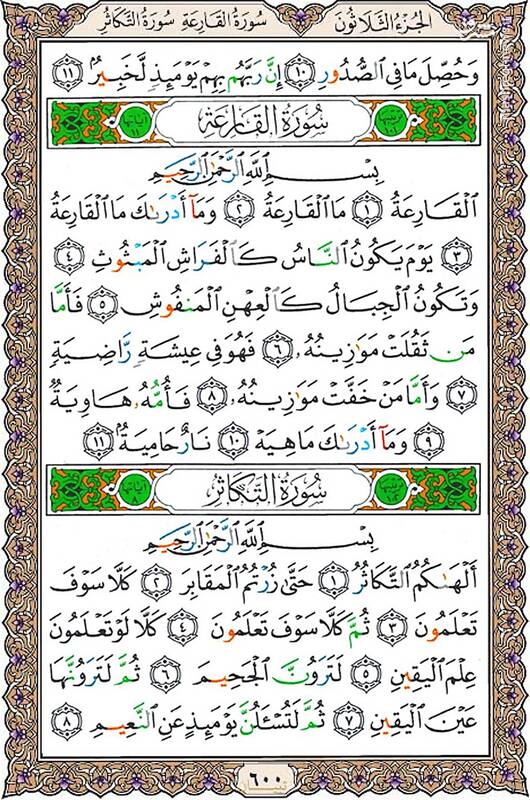 الجزء الثلاثون سورة القارعة سورة التكاثر
وَحُصِّلَ مَا فِي الصُّدُورِ ١٠ إِنَّ رَبَّهُم بِهِمْ يَوْمَئِذٍ لَّخَبِيرٌ ١١
سُورَةُ القَارِعَة
بِسْمِ اللَّهِ الرَّحْمَٰنِ الرَّحِيمِ
الْقَارِعَةُ ١ مَا الْقَارِعَةُ ٢ وَمَا أَدْرَىٰكَ مَا الْقَارِعَةُ
٣ يَوْمَ يَكُونُ النَّاسُ كَالْفَرَاشِ الْمَبْثُوثِ ٤
وَتَكُونُ الْجِبَالُ كَالْعِهْنِ الْمَنفُوشِ ٥ فَأَمَّا
مَن ثَقُلَتْ مَوَازِينُهُ ٦ فَهُوَ فِي عِيشَةٍ رَّاضِيَةٍ
٧ وَأَمَّا مَنْ خَفَّتْ مَوَازِينُهُ ٨ فَأُمُّهُ هَاوِيَةٌ
٩ وَمَا أَدْرَىٰكَ مَا هِيَهْ ١٠ نَارٌ حَامِيَةٌ ١١
سُورَةُ التَّكَاثُر
بِسْمِ اللَّهِ الرَّحْمَٰنِ الرَّحِيمِ
أَلْهَىٰكُمُ التَّكَاثُرُ ١ حَتَّىٰ زُرْتُمُ الْمَقَابِرَ ٢ كَلَّا سَوْفَ
تَعْلَمُونَ ٣ ثُمَّ كَلَّا سَوْفَ تَعْلَمُونَ ٤ كَلَّا لَوْ تَعْلَمُونَ
عِلْمَ الْيَقِينِ ٥ لَتَرَوُنَّ الْجَحِيمَ ٦ ثُمَّ لَتَرَوُنَّهَا
عَيْنَ الْيَقِينِ ٧ ثُمَّ لَتُسْـَٔلُنَّ يَوْمَئِذٍ عَنِ النَّعِيمِ ٨
٦٠٠